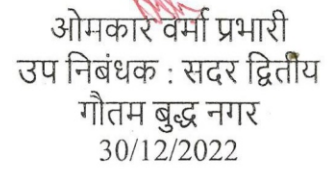 ओमकार वर्मा प्रभारी
उप निबंधक : सदर द्वितीय
गौतम बुद्ध नगर
30/12/2022